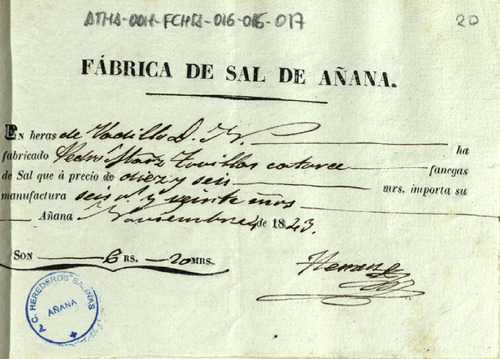 ATHA-DAH-FCHS-016-015-017
20
FÁBRICA DE SAL DE AÑANA.
EN heras de Vadillo D. ha
fabricado Pedro catorce fanegas
de Sal que á precio de diez y seis mrs. importa su
manufactura seis y veinte mrs
Añana Noviembre de 1823.
SON 6 RS. 20 MRS.
A.C. HEREDEROS SALINAS
AÑANA